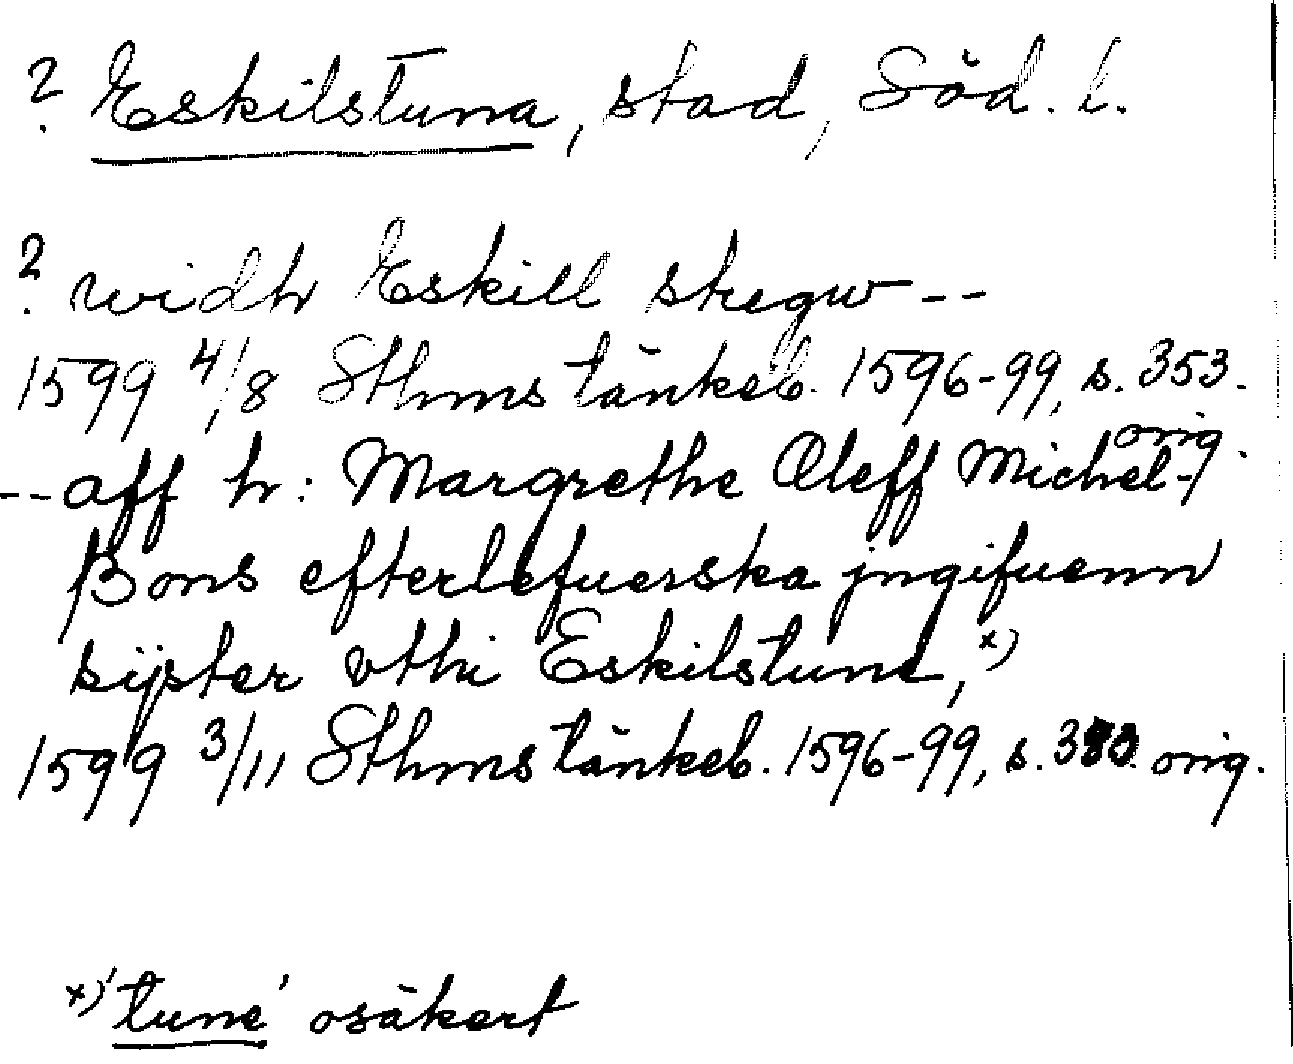 ? Eskilstuna, stad, Söd. l.
? widh Eskill stegw--
1599 4/8 Sthms tänkeb. 1596-99, s. 353. orig.
--aff h: Margrethe Oleff Michel-
ßons efterlefuerska jngifuenn
sijster vthi Eskilstune, x)
1599 3/11 Sthms tänkeb. 1596-99, s. orig.
x) 'tune' osäkert